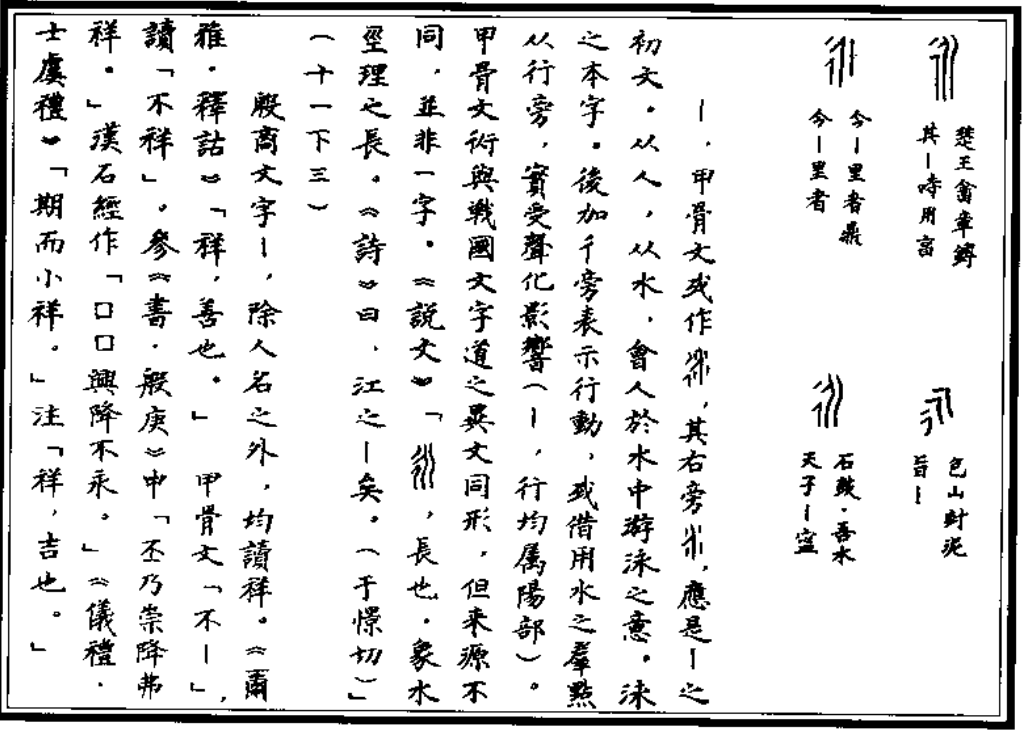 楚王酓章鎛
其丨時用言
包山封泥
旨丨
今丨里者鼎
今丨里者
石鼓·吾水
天子丨寍
丨，甲骨文或作，其右旁，應是丨之
初文。从人，从水，會人於水中游泳之意。泳
之本字。後加彳旁表示行動，或借用水之羣點
从行旁，實受聲化影響（丨，行均屬陽部）。
甲骨文術與戰國文字道之異文同形，但来源不
同，並非一字。《說文》「，長也。象水
巠理之長。《詩》曰，江之丨矣。（于憬切）」
（十一下三）
殷商文字丨，除人名之外，均讀祥。《爾
雅·釋詁》「祥，善也。」甲骨文「不丨」，
讀「不祥」。參《書·般庚》中「丕乃崇降弗
祥。」漢石經作「囗囗興降不永。」《儀禮·
士虞禮》「期而小祥。」注「祥，吉也。」